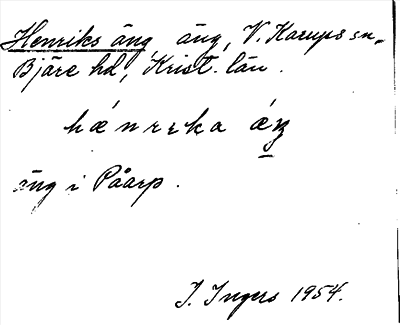 Henriks äng, äng, V. Karups sn.
Bjäre hd, Krist. län.
hǽnrɛka ǽŋ
äng i Påarp.
I. Ingers 1954.